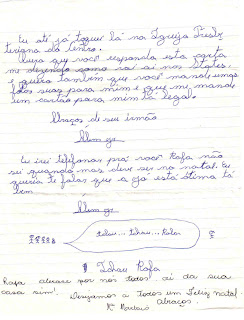 Eu até já toquei lá na Igreja Presbi-
teriana do Centro.
Quero que você responda esta carta
me dizendo como vai aí nos States.
e quero também que você mande uma
foto suas para mim e que me mande
um cartão para mim tá legal.
Abraços de seu irmão
Eu irei telefonar pra você Rafa não
sei quando mas deve ser no natal. Eu
queria te falar que a já está ótima tá
bem
tchau... tchau... Rafa
Tchau Rafa
Rafa abrace por nós todos aí da sua
casa sim! Desejamos a todos um Feliz natal.
abraços.